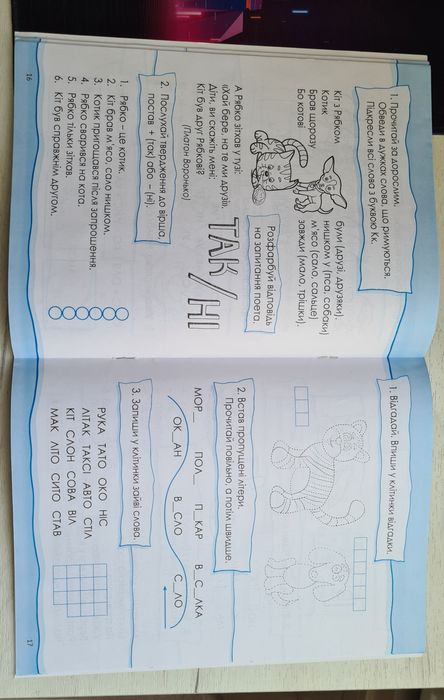 1. Прочитай за дорослим.
Обведи в дужках слова, що римуються.
Підкресли всі слова з буквою Кк.
Кіт з Рябком
Котик
Брав щоразу
Бо котові
були (друзі, друзяки),
нишком у (пса, собаки)
м'ясо (сало, сальце)
завжди (мало, трішки).
А Рябко зітхав у тузі:
«Хай бере, на те ми друзі».
Діти, ви скажіть мені:
Кіт був друг Рябкові?
(Платон Воронько)
ТАК/НІ
Розфарбуй відповідь
на запитання поета.
2. Послухай твердження до вірша,
постав + (так) або – (ні).
1. Рябко – це котик.
2. Кіт брав м'ясо, сало нишком.
3. Котик пригощався після запрошення.
4. Рябко сварився на кота.
5. Рябко тільки зітхав.
6. Кіт був справжнім другом.
16
1. Відгадай. Впиши у клітинки відгадки.
2. Встав пропущені літери.
Прочитай повільно, а потім швидше.
МОР_ ПОЛ_ П_КАР В_С_ЛКА
ОК_АН В_СЛО С_ЛО
3. Запиши у клітинки зайві слова.
РУКА ТАТО ОКО НІС
ЛІТАК ТАКСІ АВТО СТІЛ
КІТ СЛОН СОВА ВІЛ
МАК ЛІТО СИТО СТАВ
17